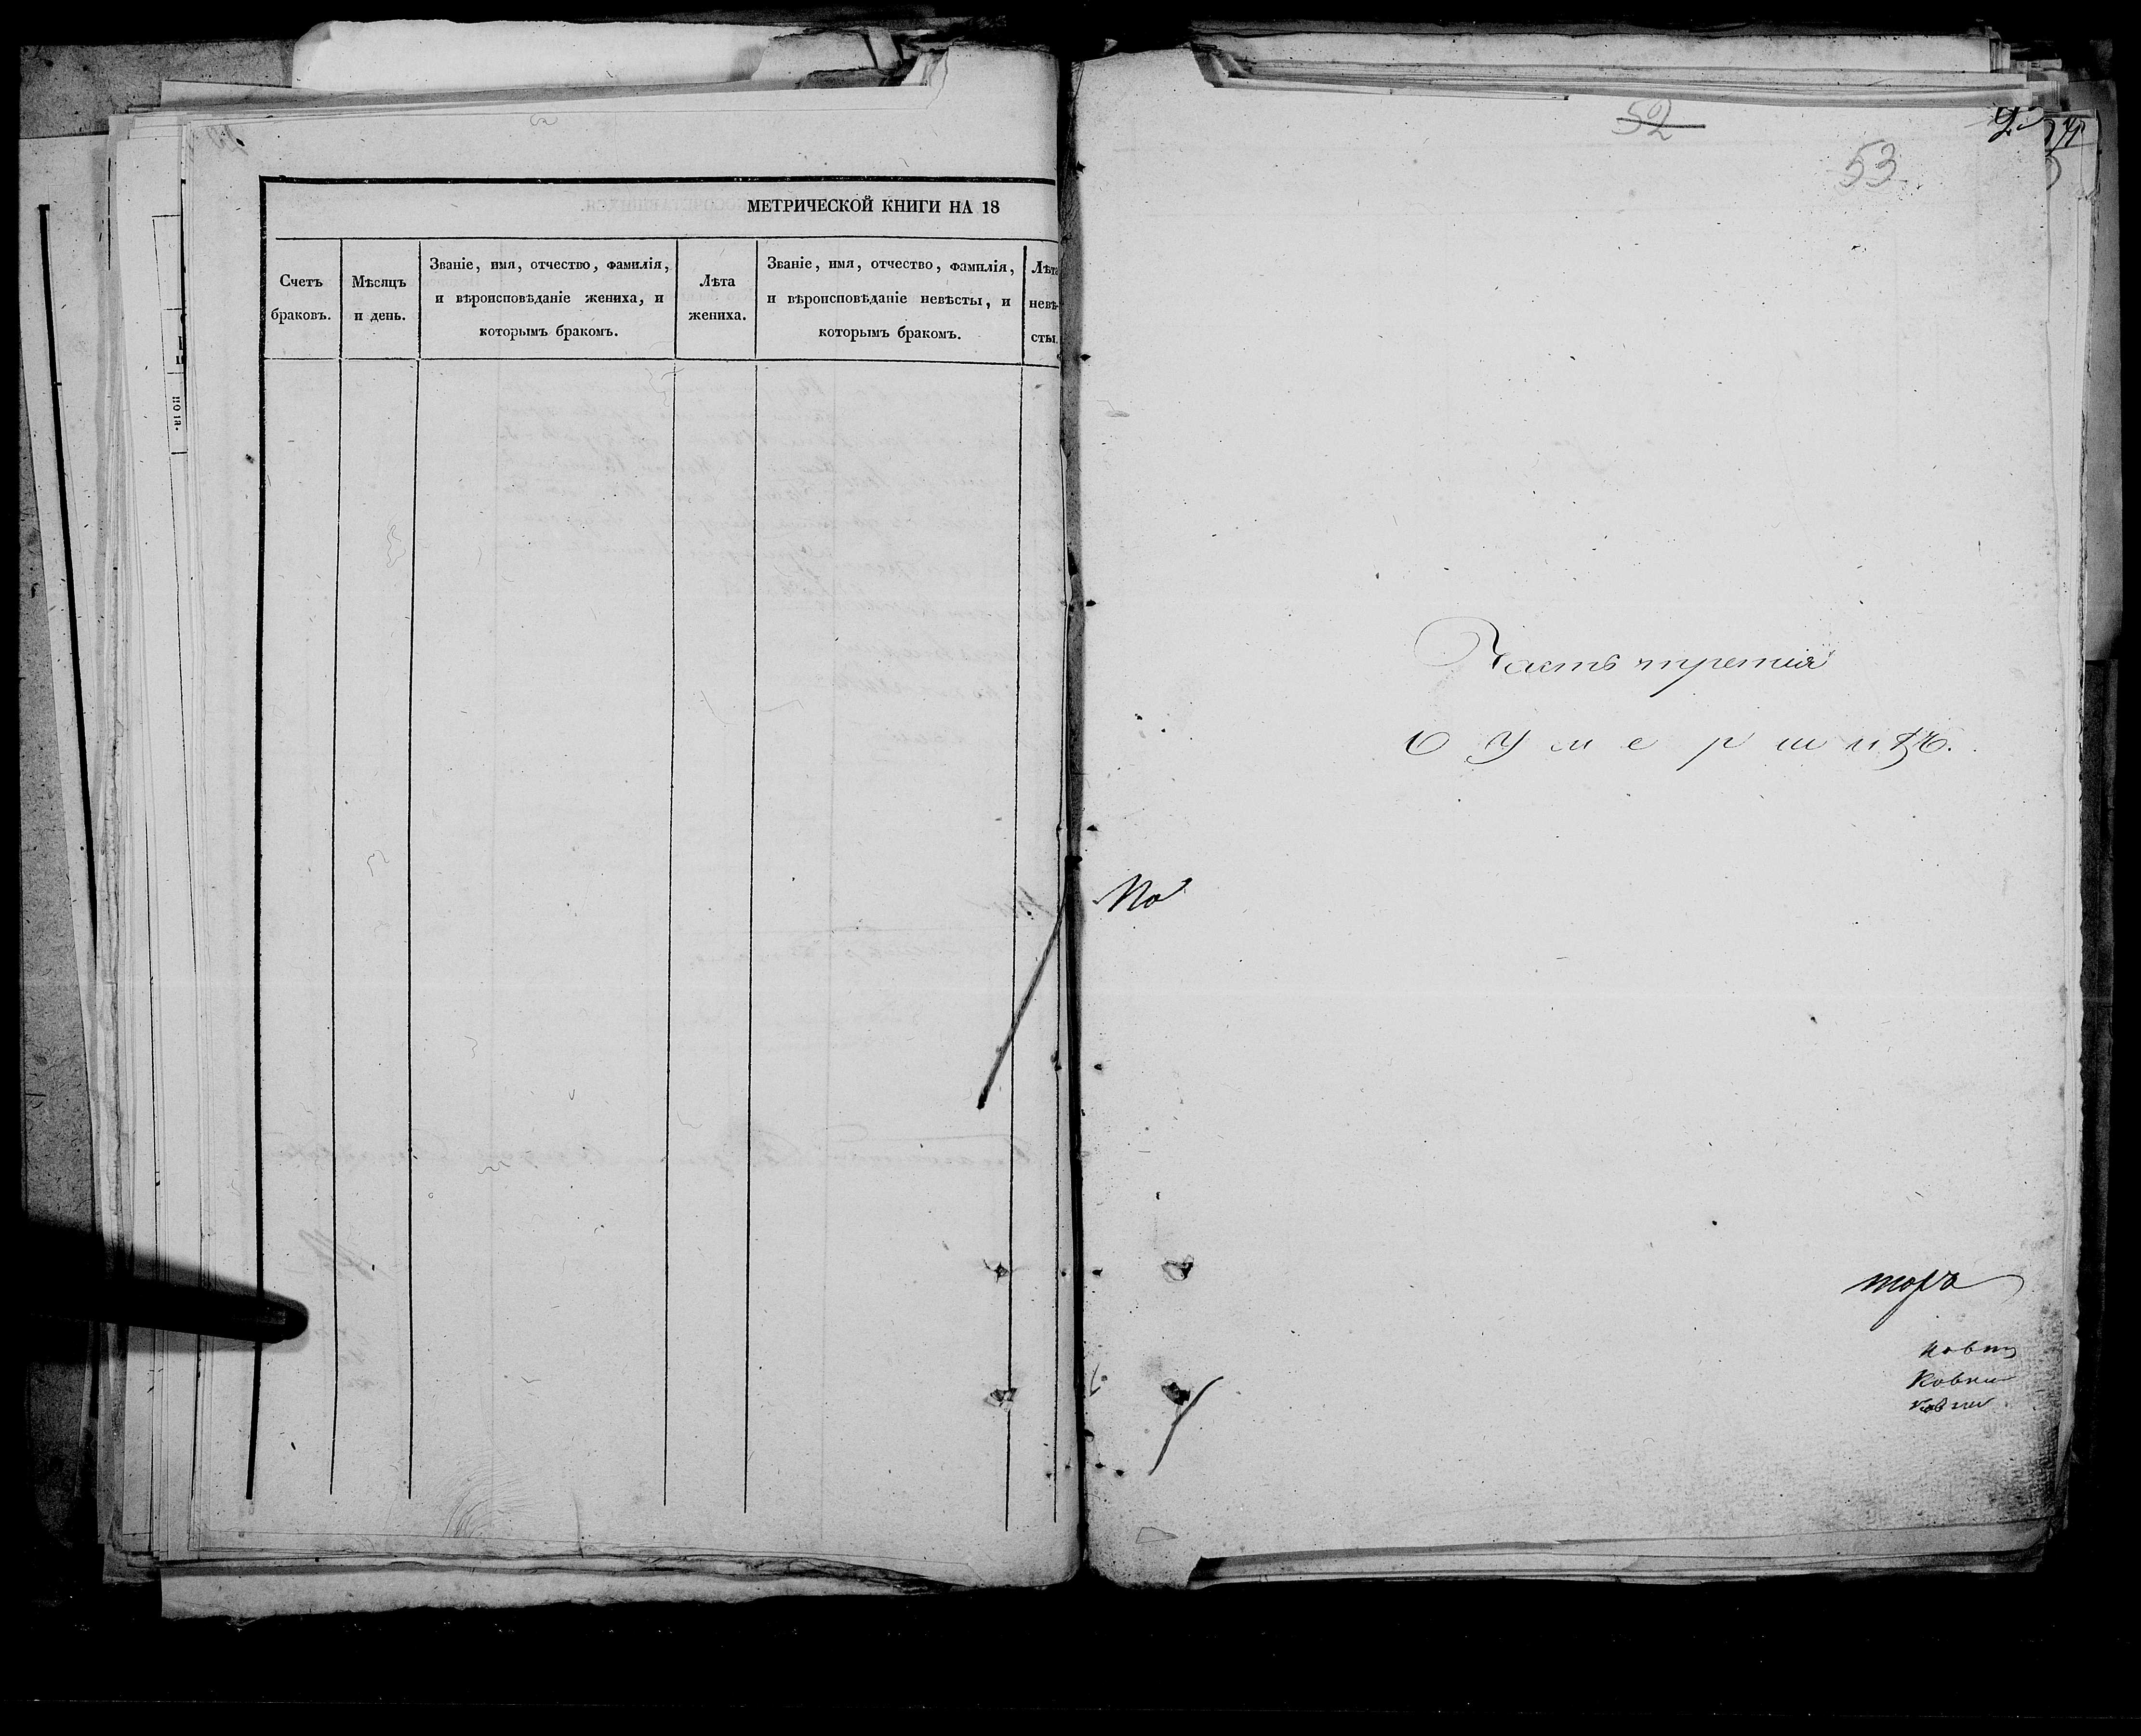 МЕТРИЧЕСКОЙ КНИГИ НА 18
Счетъ
браковъ.
Мѣсяцъ
и день.
Званіе, имя, отчество, фамилія,
и вѣроисповѣданіе жениха, и
которымъ бракомъ.
Лѣта
жениха.
Званіе, имя, отчество, фамилія,
и вѣроисповѣданіе невѣсты, и
которымъ бракомъ.
Лѣта
невѣ-
сты.
по
52
53
Часть третія
О Умершихъ.
По
тора